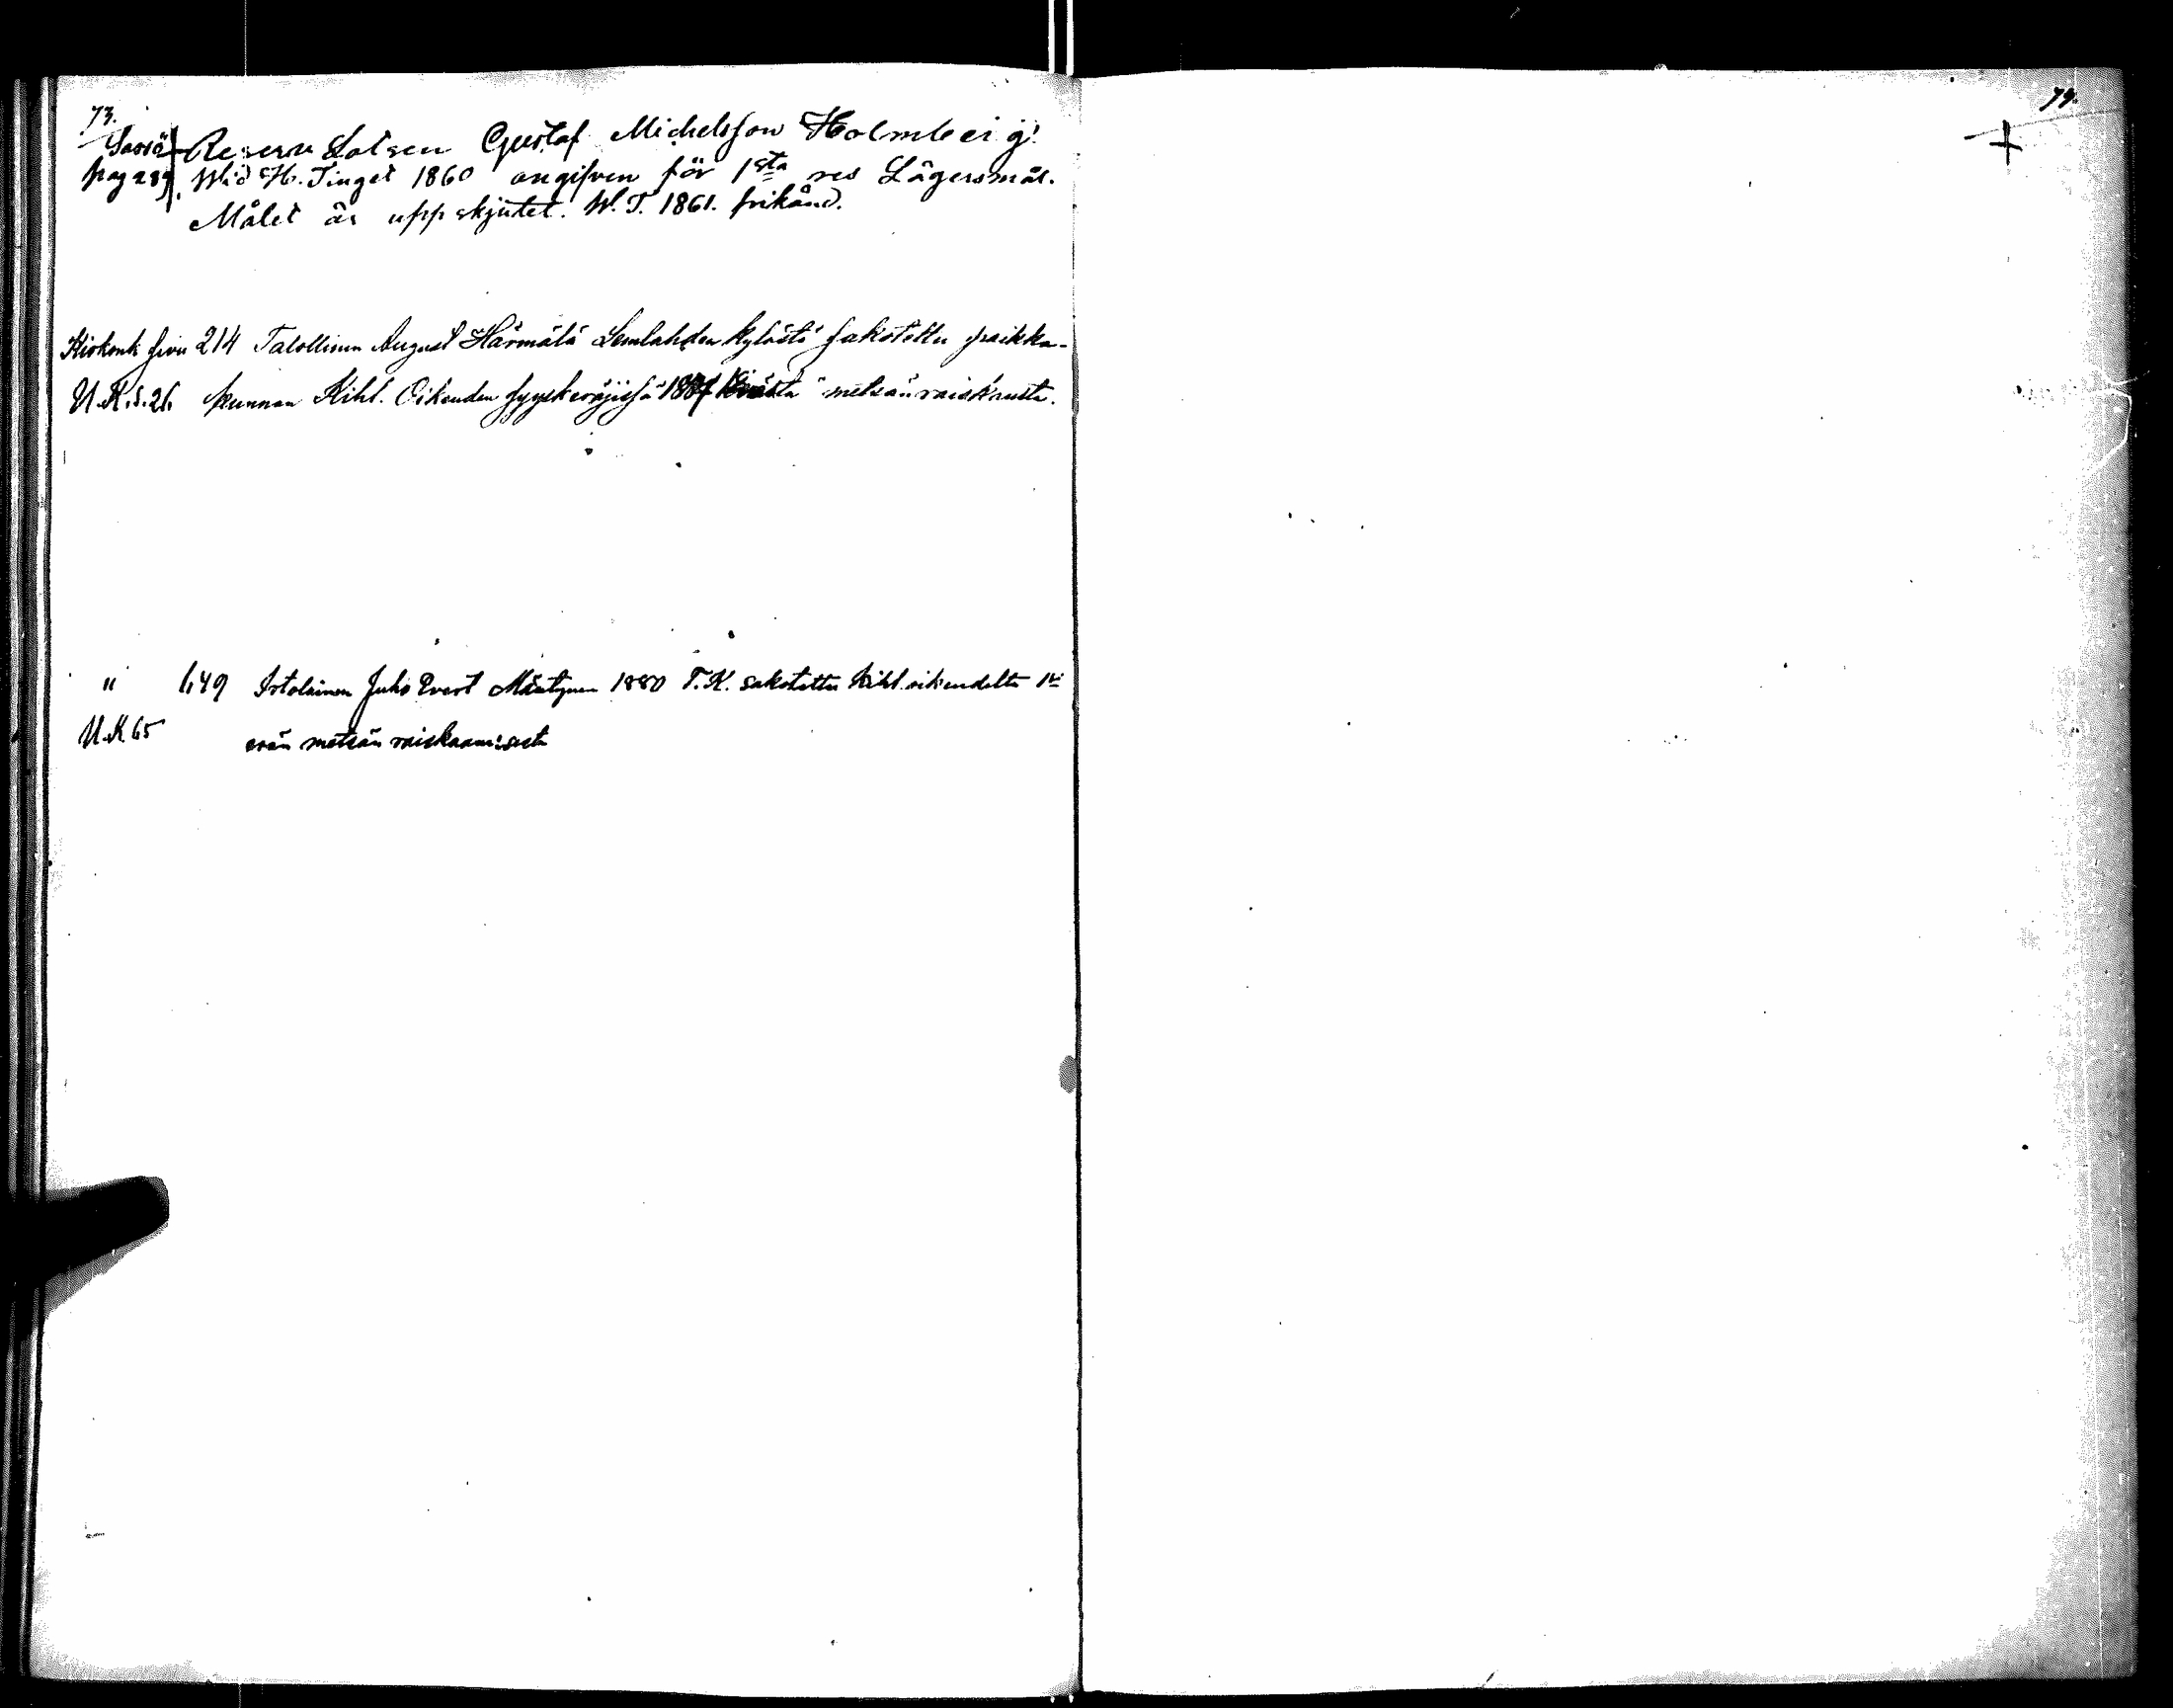 73.
79.
Reserv Lotsen Gustaf Michelsson Holmberg
pag 289. Wid H. Tinget 1860 angifven för 1sta res Lägersmål.
Målet är uppskjutet. W.T. 1861. frikänd.
Kirkonk sivu 214 Talollinen August Härmälä Lemlahden kylästä sakotettu paikka-
U.K.s.26 kunnan Kihl. Oikeuden syyskäräjissä metsän raiskausta.
" 149 Itolainen Juho Evert Mäntynen 1880 T.K. sakotettu Kihl. oikeudelta 1si
U.K 65 erän metsän raiskaamisesta